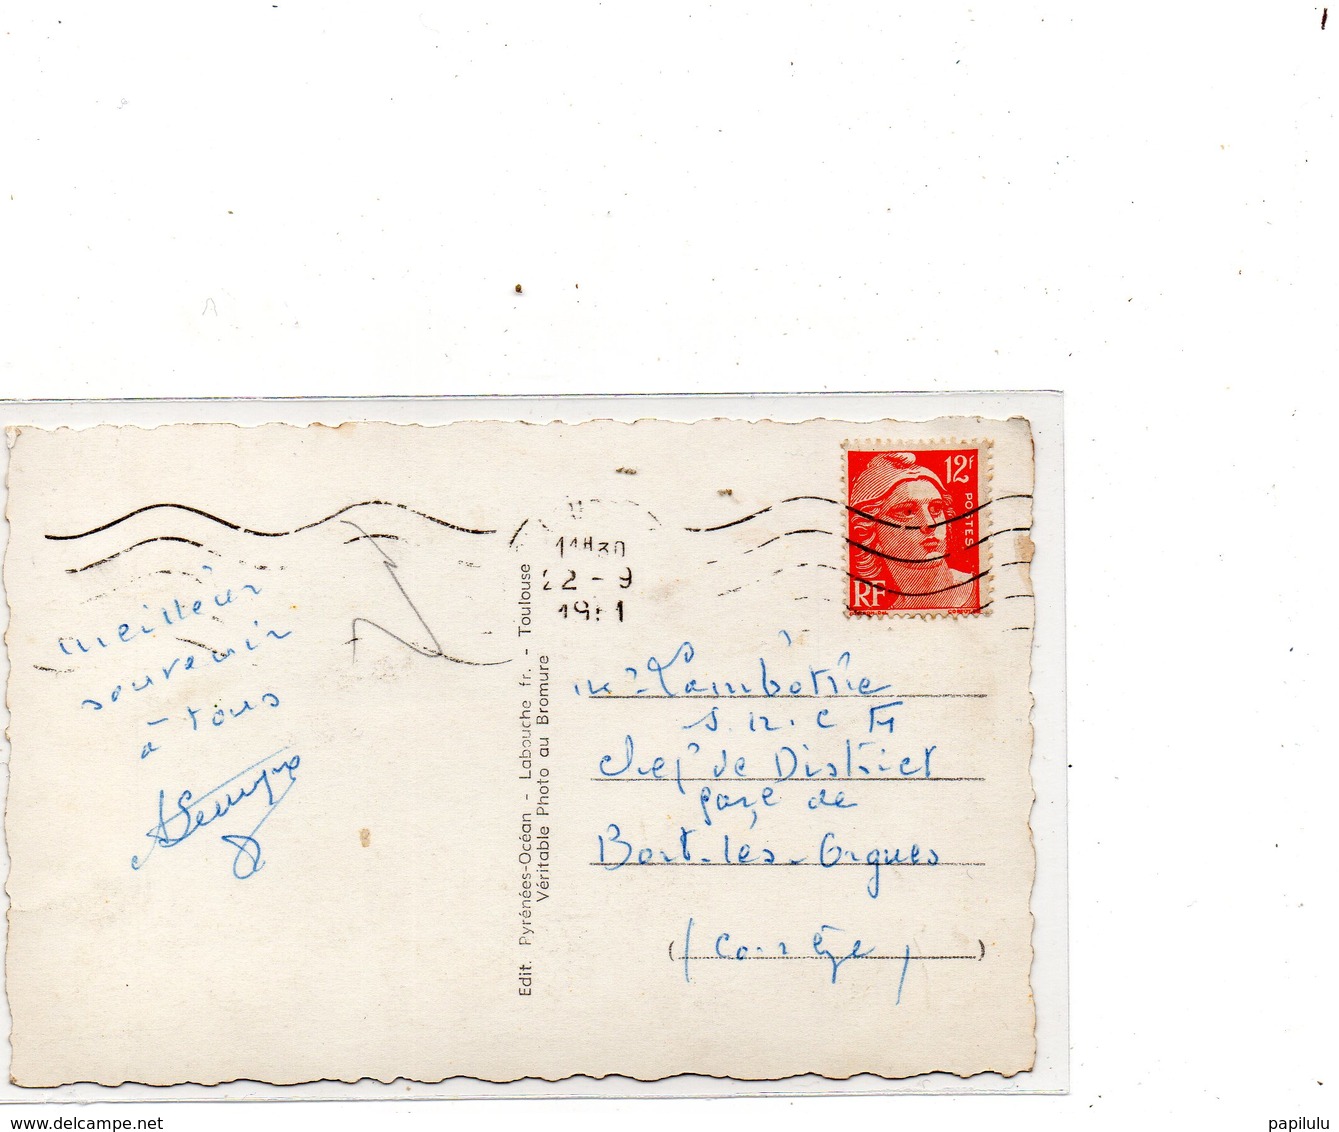 12f
POSTES
RF
22 - 9
meilleur
souvenir
à tous
Edit. Pyrénées-Océan - Labouche fr. - Toulouse
Véritable Photo au Bromure
S.N.C.F.
Chef de District
gare de
Bort-les-Orgues
(Corrèze)
www.delcampe.net
papilulu